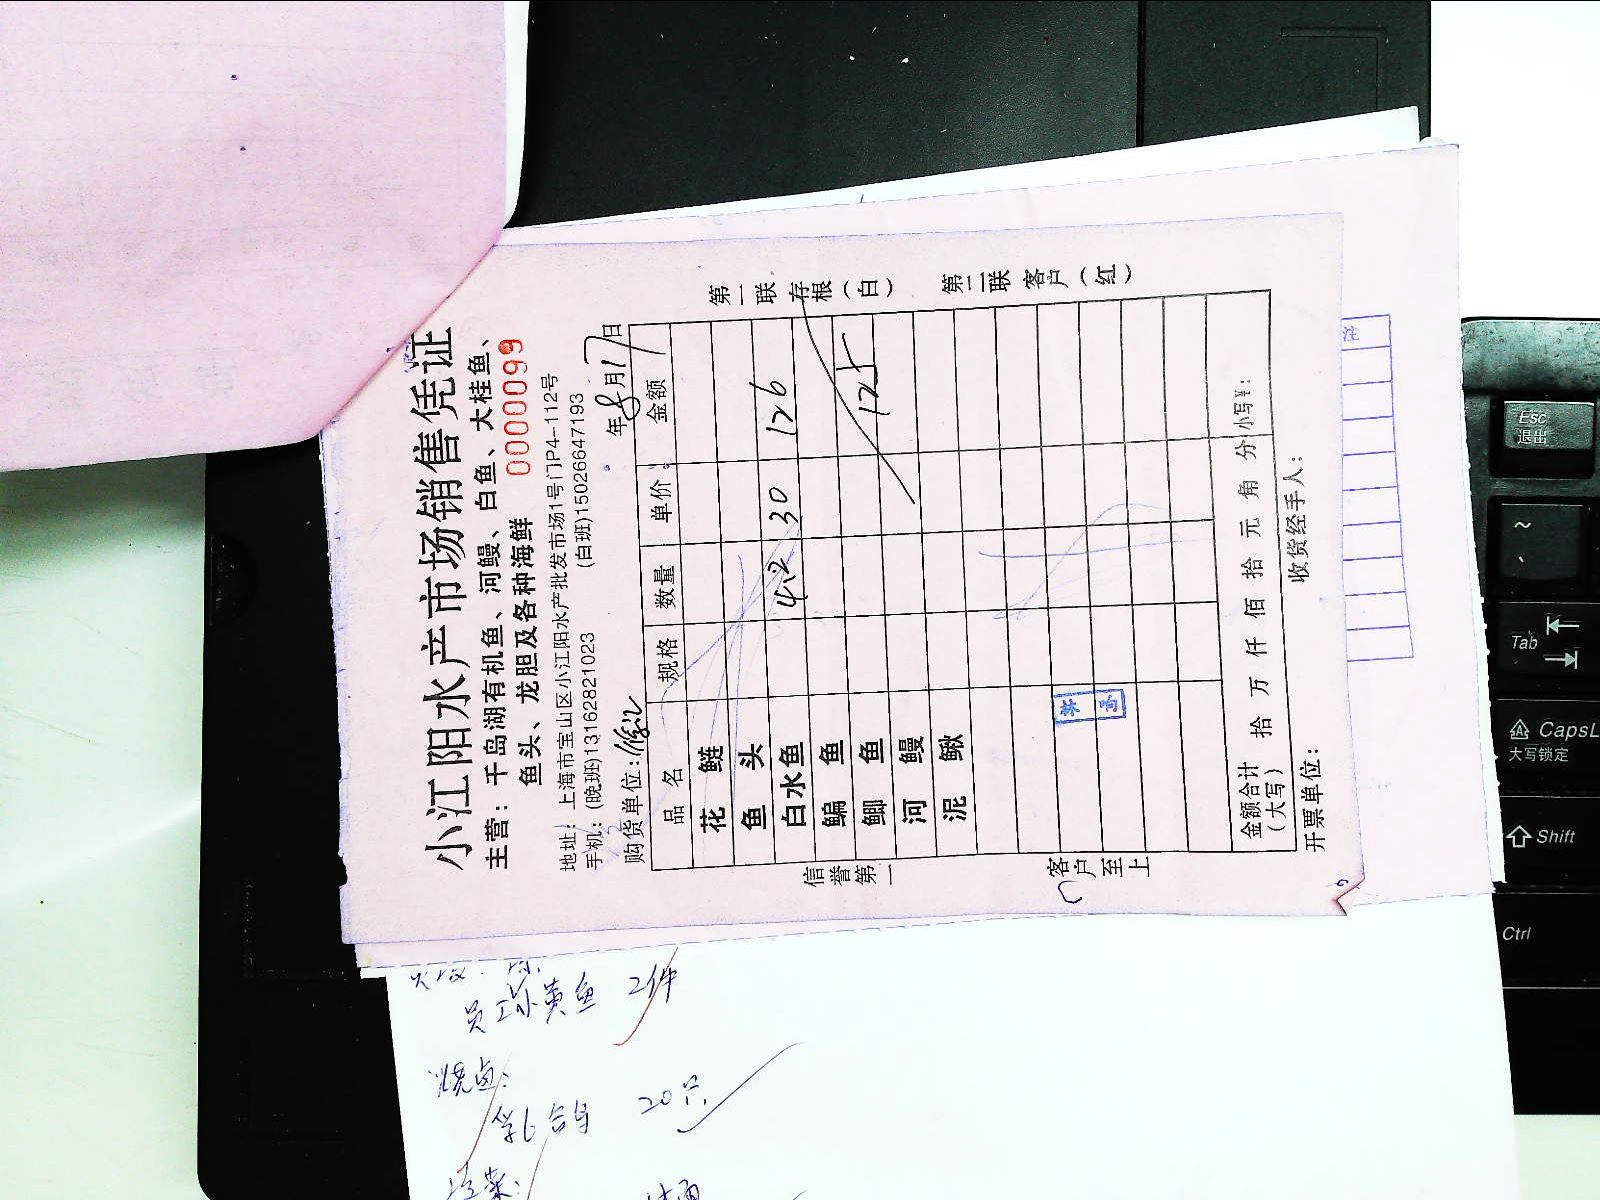 小江阳水产市场销售凭证
主营：千岛湖有机鱼、河鳗、白鱼、大桂鱼、
鱼头、龙胆及各种海鲜 0000099
地址：上海市宝山区小江阳水产批发市场1号门P4-112号
手机：(晚班)13162821023 (白班)15026647193
购货单位： 年8月17日
品名 规格 数量 单价 金额
花鲢
鱼头
白水鱼 4.2 30 126
鳊鱼
鲫鱼 125
河鳗
泥鳅
金额合计(大写) 拾 万 仟 佰 拾 元 角 分 小写¥:
开票单位： 收货经手人：
第一联 存根（白） 第二联 客户（红）
信誉第一 客户至上
员工小黄鱼 2件
烧卤：
乳鸽 20只
Esc
退出
~
Tab
CapsL
大写锁定
Shift
Ctrl